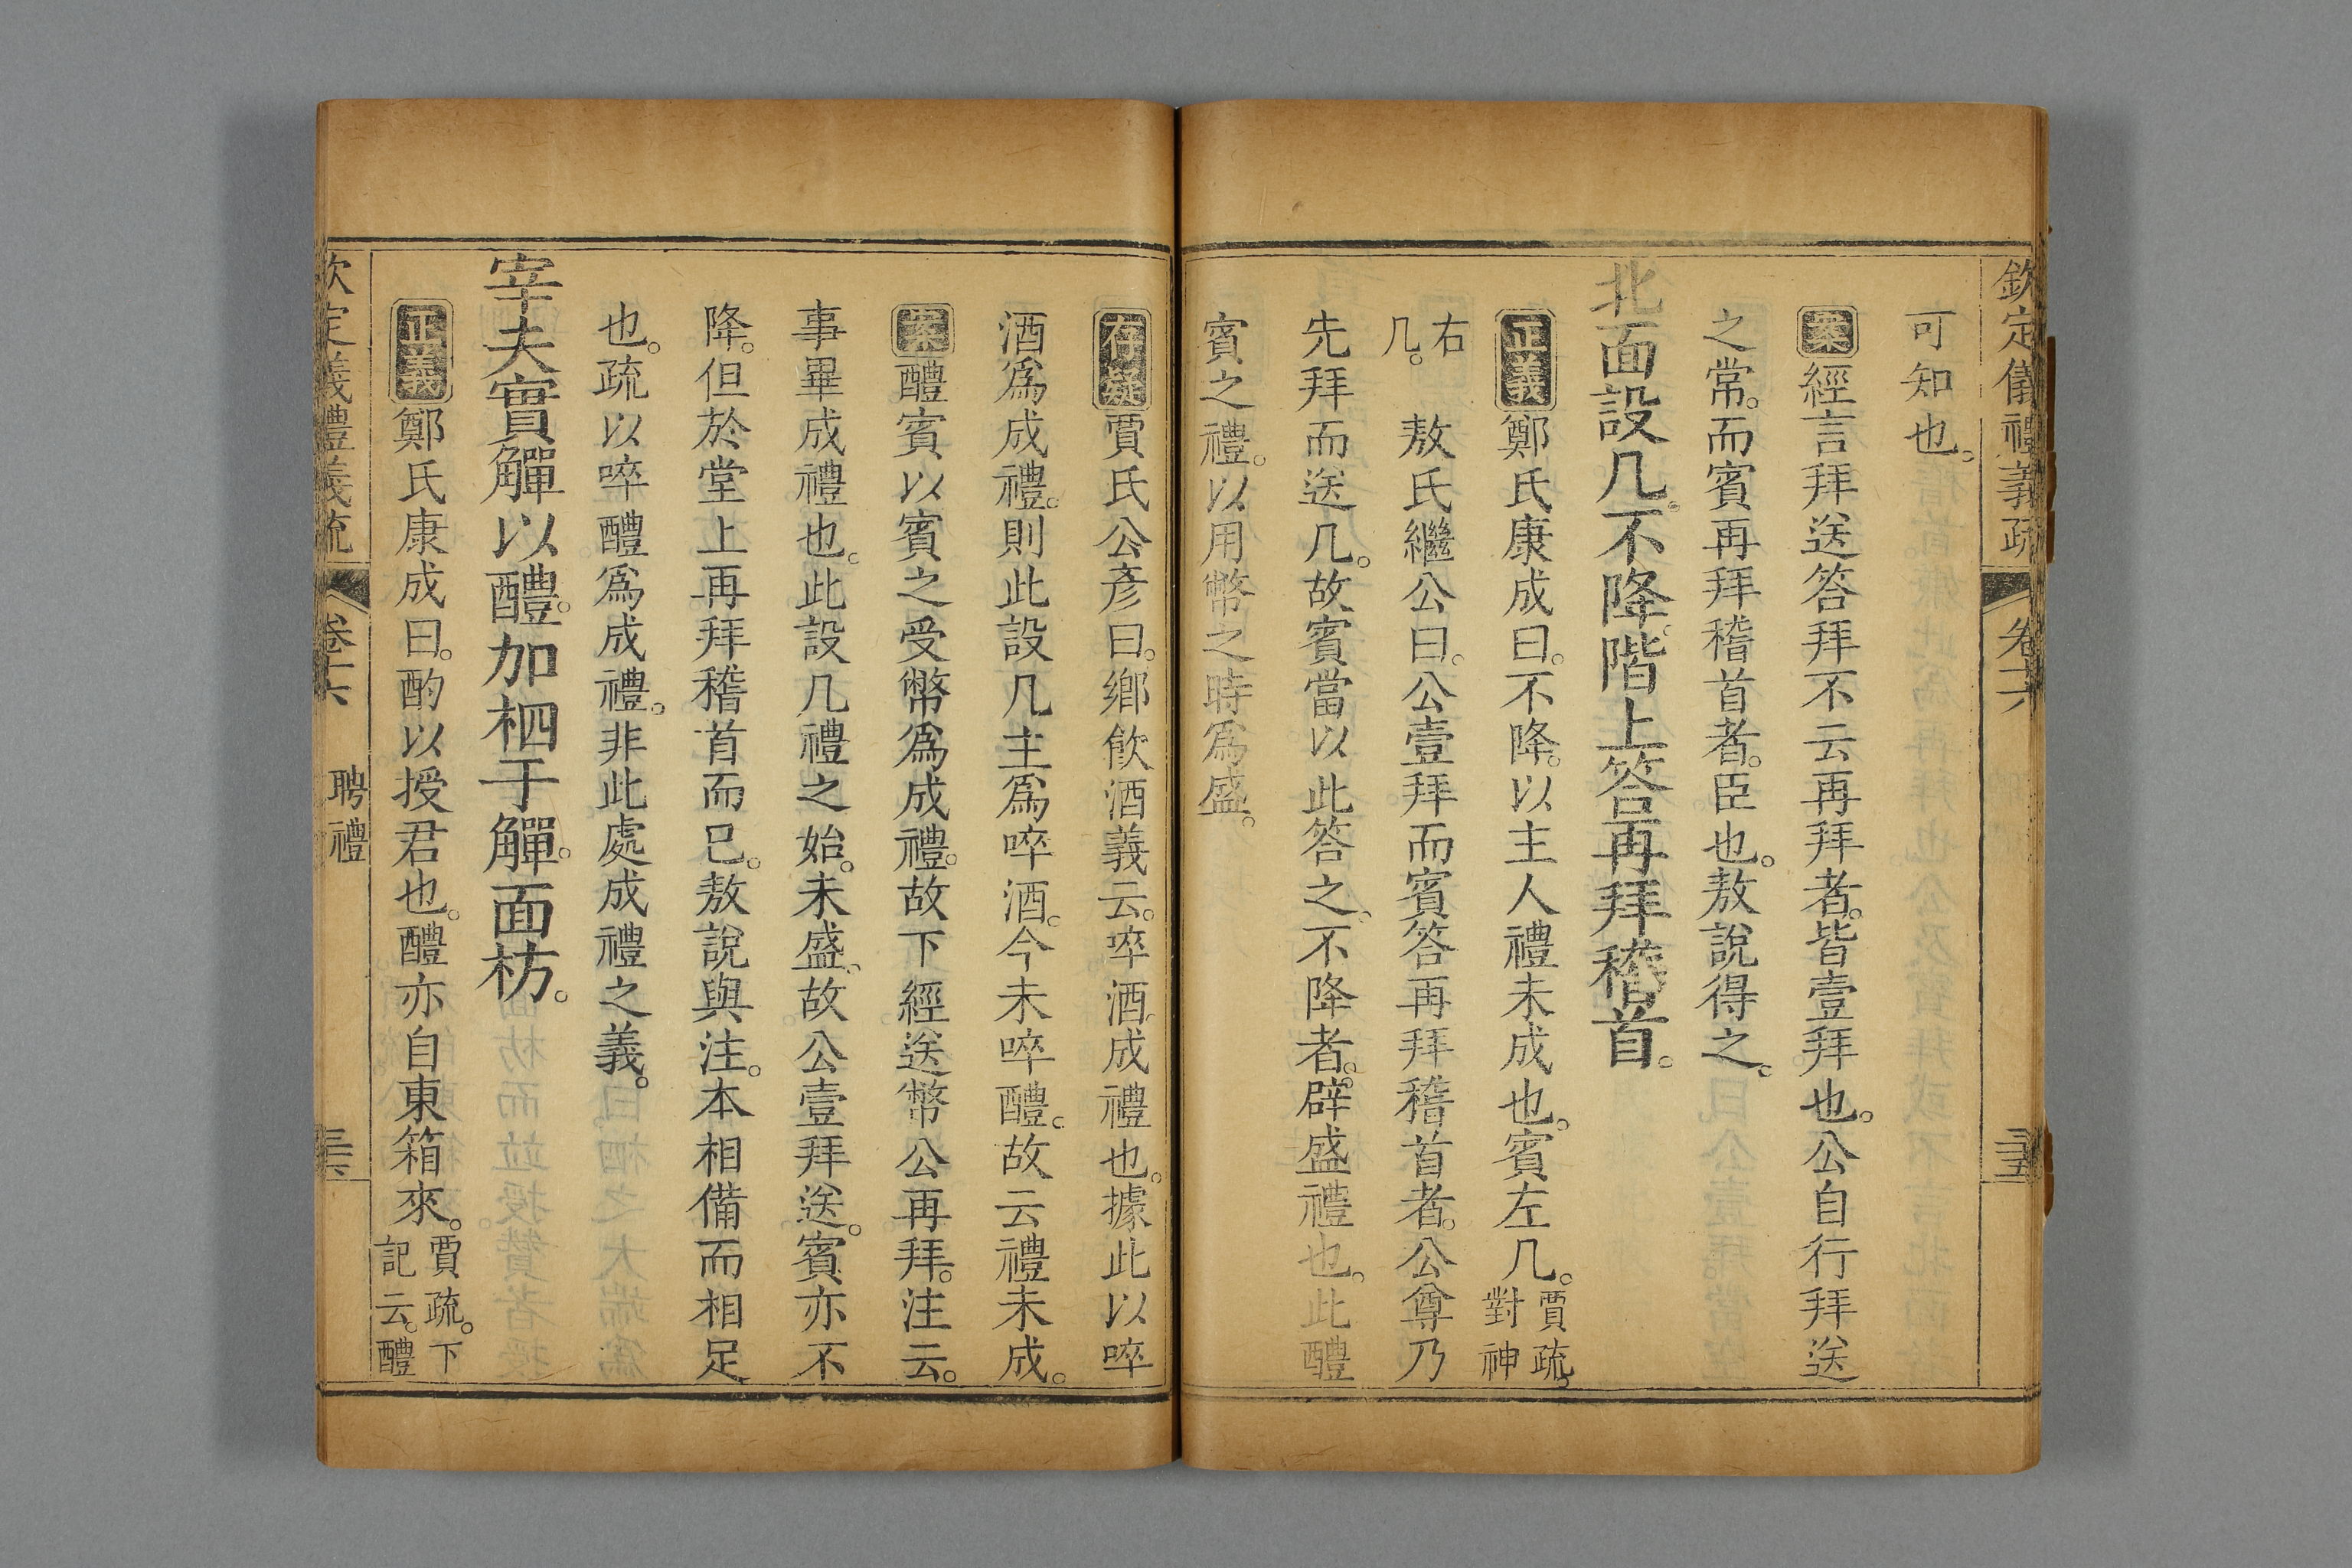 欽定儀禮義疏 卷十六 三十五
可知也。
案經言拜送答拜不云再拜者。皆壹拜也。公自行拜送
之常。而賓再拜稽首者。臣也。敖說得之。
北面設几。不降。階上答再拜稽首。
正義鄭氏康成曰。不降。以主人禮未成也。賓左几。賈疏。對神
右几。 敖氏繼公曰。公壹拜而賓答再拜稽首者。公尊乃
先拜而送几。故賓當以此答之。不降者。辟盛禮也。此醴
賓之禮。以用幣之時爲盛。
存疑賈氏公彥曰。鄉飲酒義云。啐酒。成禮也。據此以啐
酒爲成禮。則此設几主爲啐酒。今未啐醴。故云禮未成。
案醴賓以賓之受幣爲成禮。故下經送幣公再拜。注云。
事畢成禮也。此設几禮之始。未盛。故公壹拜送。賓亦不
降。但於堂上再拜稽首而已。敖說與注。本相備而相足
也。疏以啐醴爲成禮。非此處成禮之義。
宰夫實觶以醴。加柶于觶。面枋。
正義鄭氏康成曰。酌以授君也。醴亦自東箱來。賈疏。下記云。醴
欽定義禮義疏 卷十六 聘禮